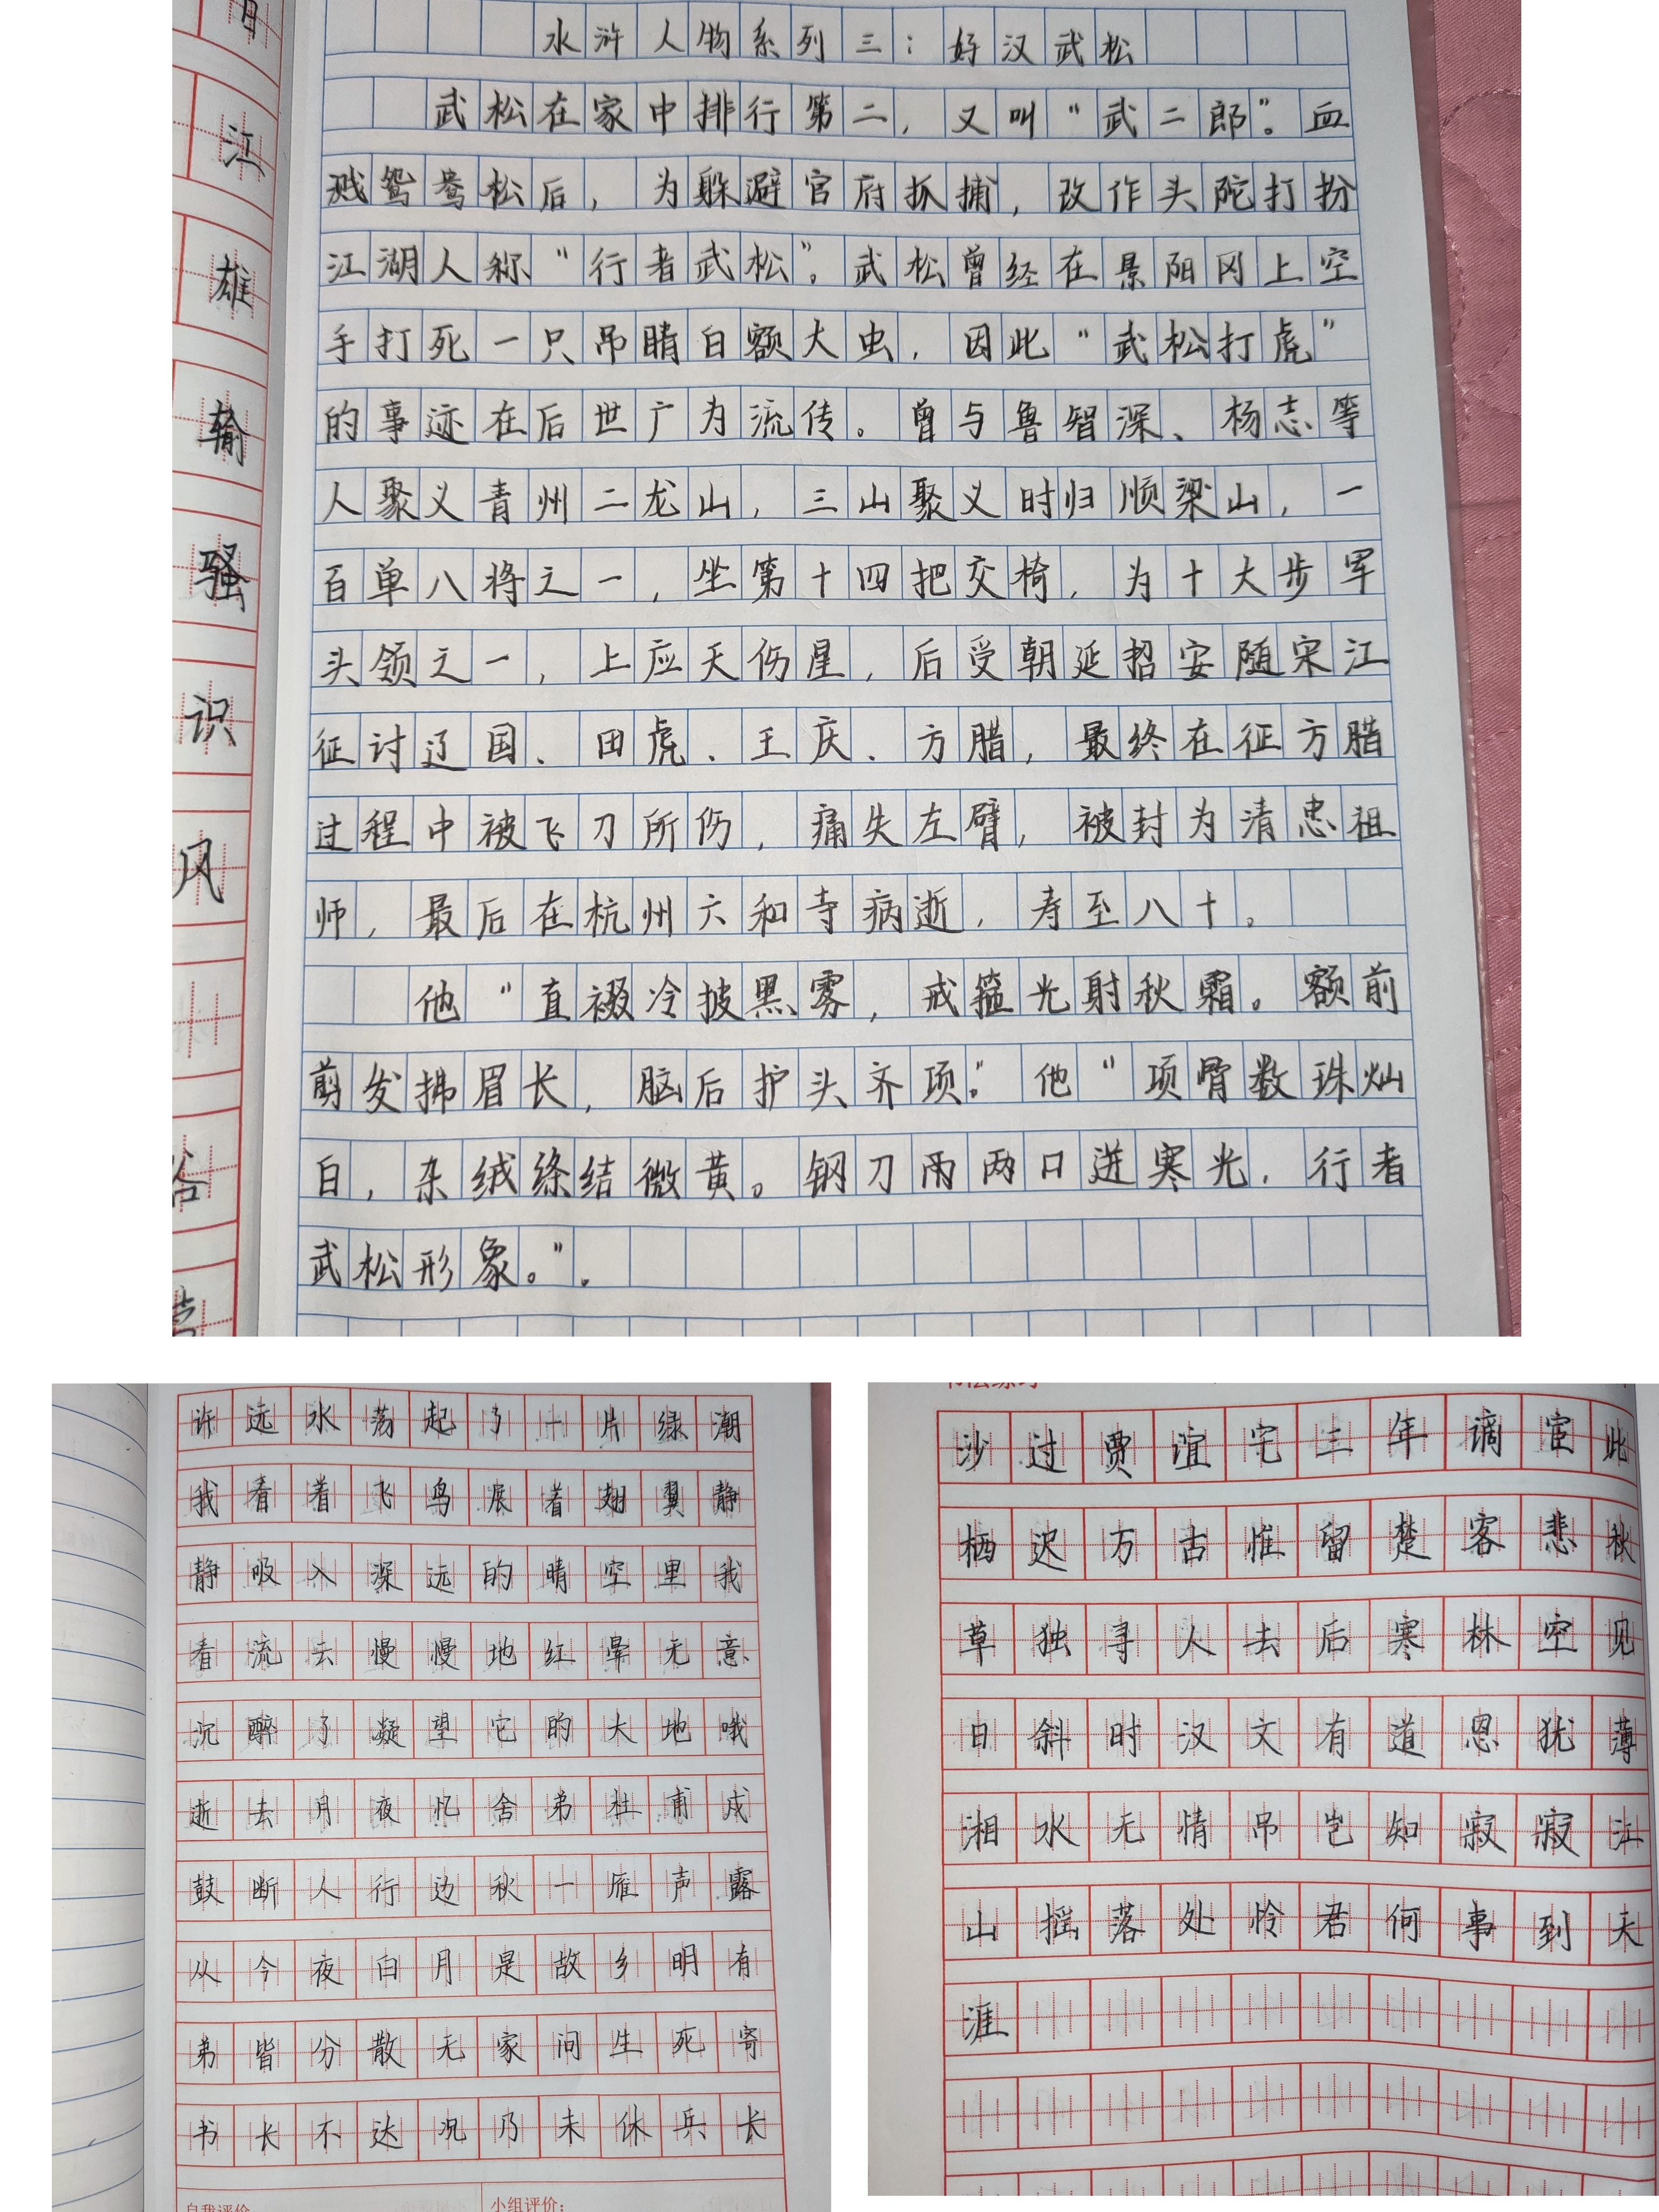 水浒人物系列三：好汉武松
武松在家中排行第二，又叫“武二郎”。血
溅鸳鸯松后，为躲避官府抓捕，改作头陀打扮
江湖人称“行者武松”。武松曾经在景阳冈上空
手打死一只吊睛白额大虫，因此“武松打虎”
的事迹在后世广为流传。曾与鲁智深、杨志等
人聚义青州二龙山，三山聚义时归顺梁山，一
百单八将之一，坐第十四把交椅，为十大步军
头领之一，上应天伤星，后受朝廷招安随宋江
征讨辽国、田虎、王庆、方腊，最终在征方腊
过程中被飞刀所伤，痛失左臂，被封为清忠祖
师，最后在杭州六和寺病逝，寿至八十。
他“直裰冷披黑雾，戒箍光射秋霜。额前
剪发拂眉长，脑后护头齐项。”他“项骨数珠灿
白，杂绒绦结微黄。钢刀两两口迸寒光，行者
武松形象。”.
江
雄
输
骚
识
风
许远水荡起了一片绿潮
我看着飞鸟展着翅翼静
静吸入深远的晴空里我
看流云慢慢地红晕无意
沉醉了凝望它的大地哦
逝去月夜忆舍弟杜甫戍
鼓断人行边秋一雁声露
从今夜白月是故乡明有
弟皆分散无家问生死寄
书长不达况乃未休兵长
自我评价
小组评价：
沙过贾谊宅三年谪宦此
栖迟万古惟留楚客悲秋
草独寻人去后寒林空见
日斜时汉文有道恩犹薄
湘水无情吊岂知寂寂江
山摇落处怜君何事到天
涯